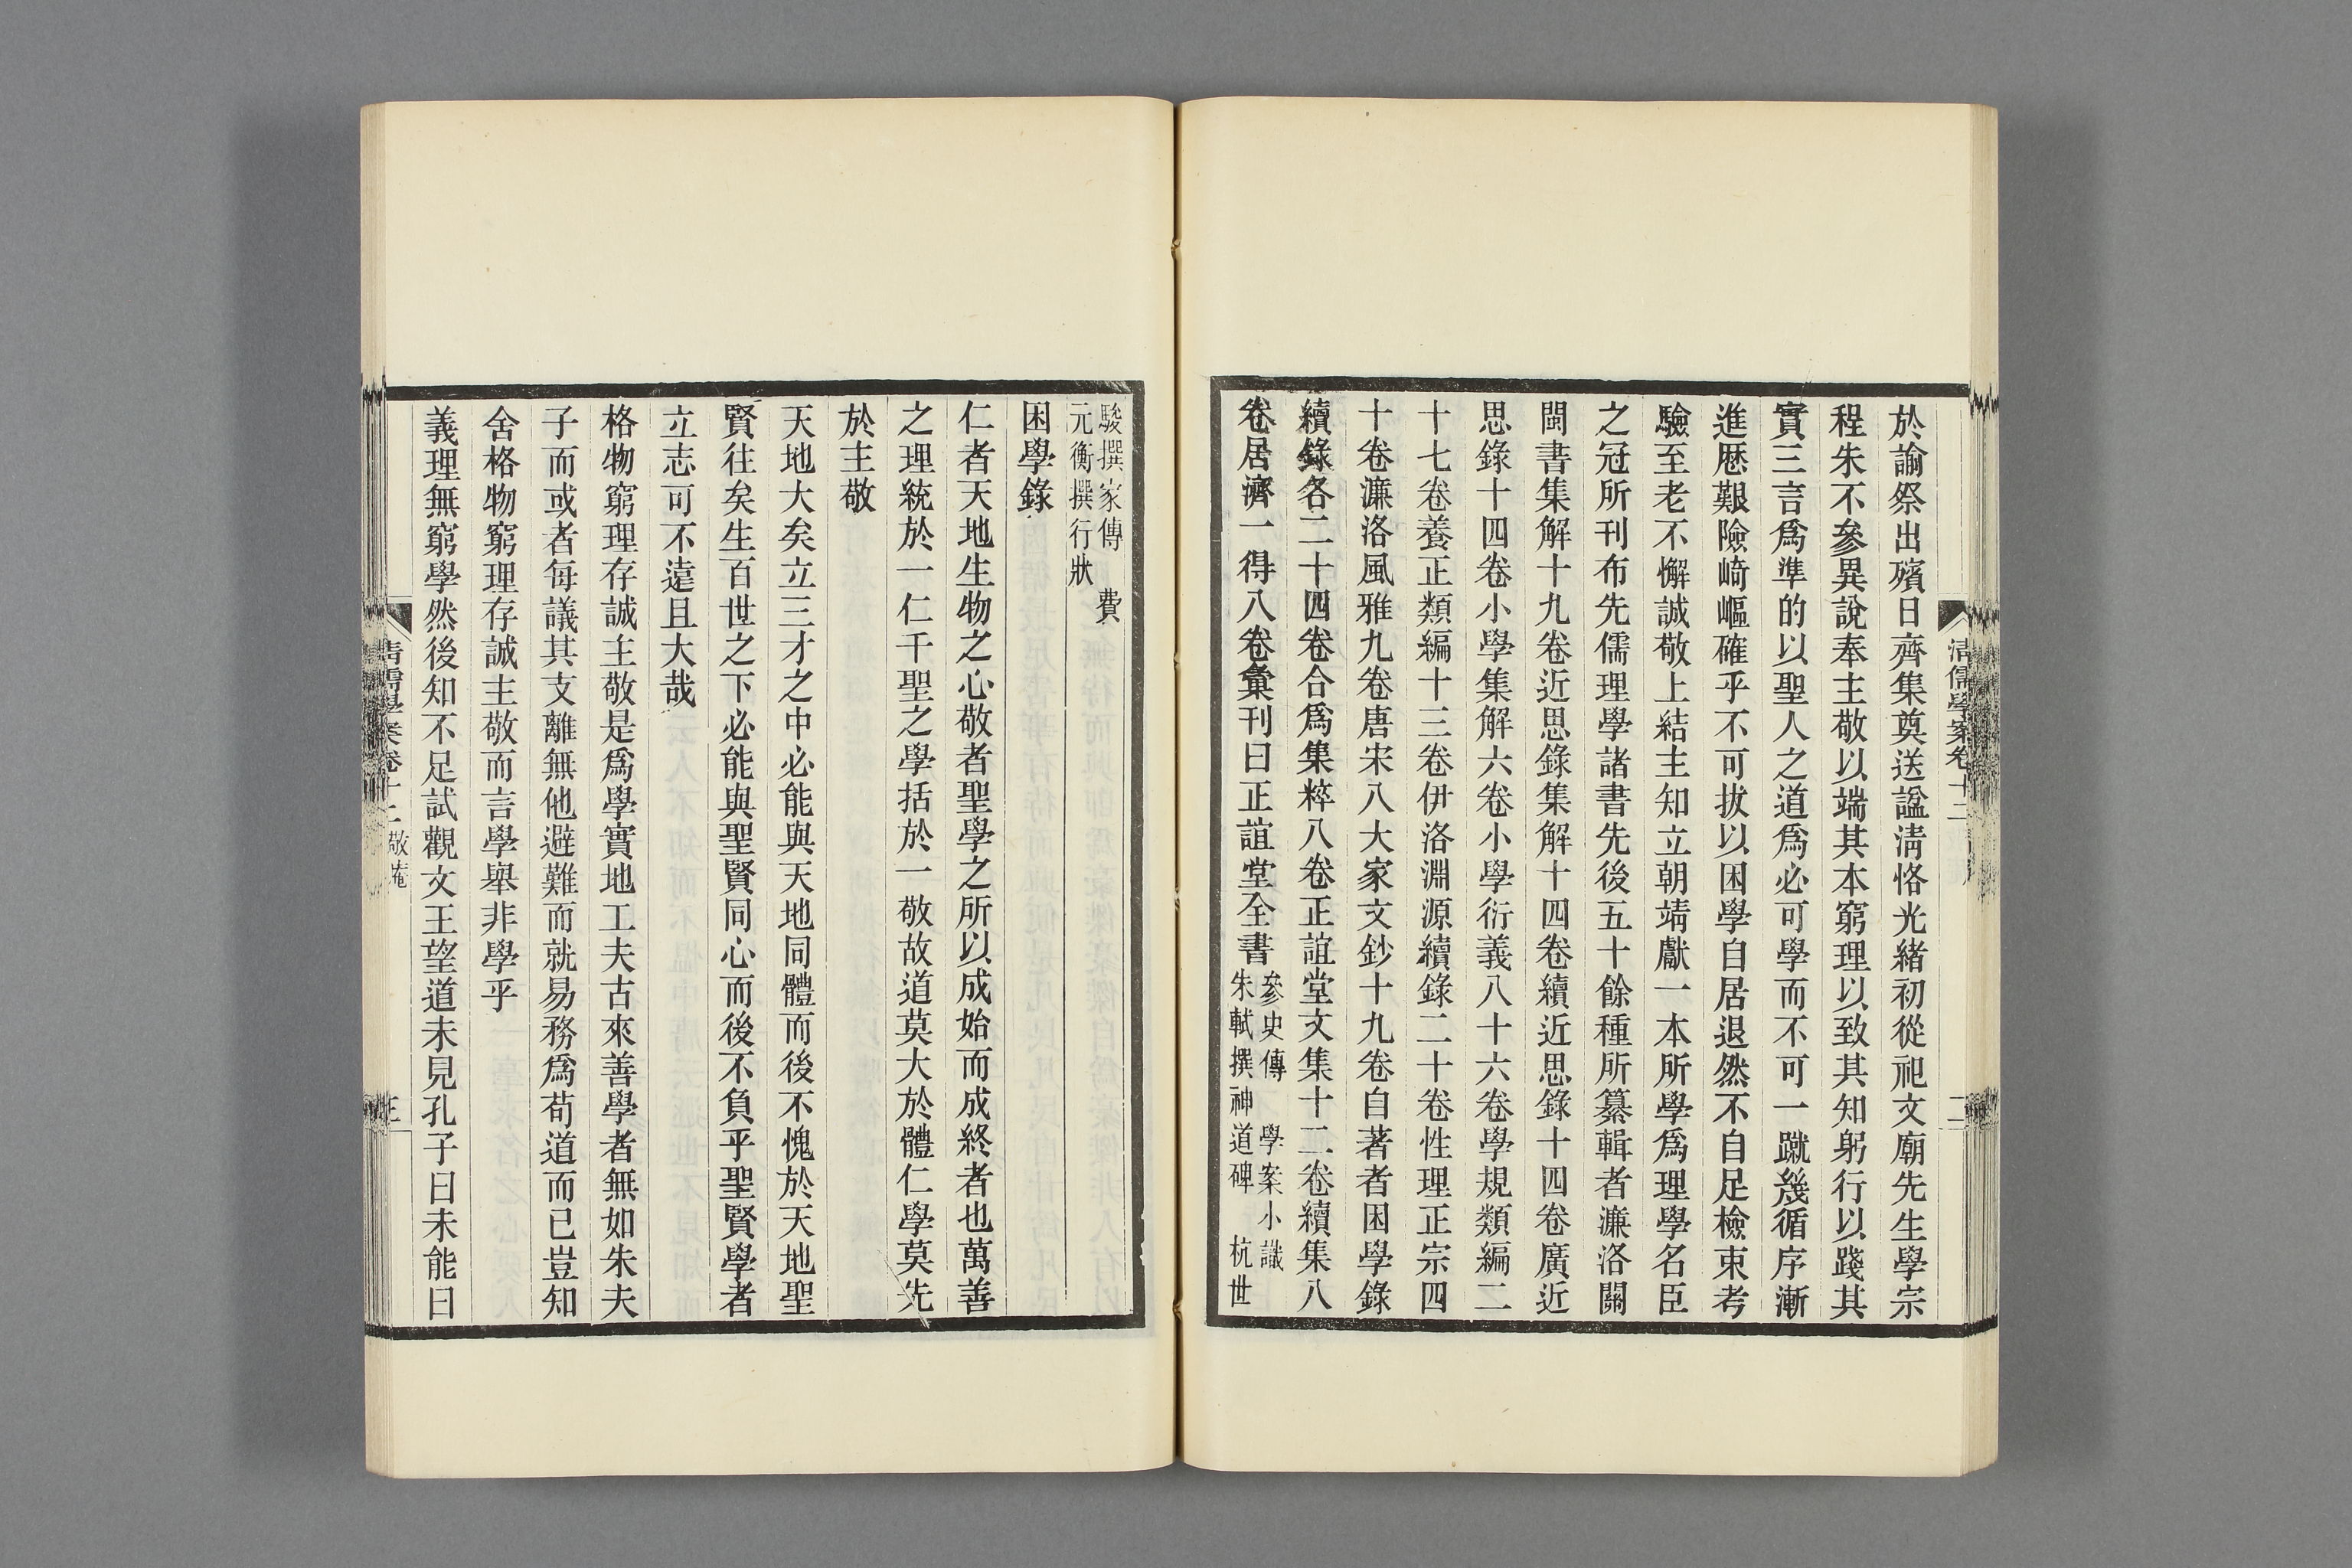 於諭祭出殯日齊集奠送諡淸恪光緒初從祀文廟先生學宗
程朱不參異說奉主敬以端其本窮理以致其知躬行以踐其
實三言爲準的以聖人之道爲必可學而不可一蹴幾循序漸
進厯艱險崎嶇確乎不可拔以困學自居退然不自足檢束考
驗至老不懈誠敬上結主知立朝靖獻一本所學爲理學名臣
之冠所刊布先儒理學諸書先後五十餘種所纂輯者濂洛關
閩書集解十九卷近思錄集解十四卷續近思錄十四卷廣近
思錄十四卷小學集解六卷小學衍義八十六卷學規類編二
十七卷養正類編十三卷伊洛淵源續錄二十卷性理正宗四
十卷濂洛風雅九卷唐宋八大家文鈔十九卷自著者困學錄
續錄各二十四卷合爲集粹八卷正誼堂文集十二卷續集八
卷居濟一得八卷彙刊曰正誼堂全書
參史傳 學案小識
朱軾撰神道碑 杭世
淸儒學案卷十二
二
駿撰家傳 費
元衡撰行狀
困學錄
仁者天地生物之心敬者聖學之所以成始而成終者也萬善
之理統於一仁千聖之學括於一敬故道莫大於體仁學莫先
於主敬
天地大矣立三才之中必能與天地同體而後不愧於天地聖
賢往矣生百世之下必能與聖賢同心而後不負乎聖賢學者
立志可不遠且大哉
格物窮理存誠主敬是爲學實地工夫古來善學者無如朱夫
子而或者每議其支離無他避難而就易務爲苟道而已豈知
舍格物窮理存誠主敬而言學舉非學乎
義理無窮學然後知不足試觀文王望道未見孔子曰未能曰
淸儒學案卷十二 敬庵